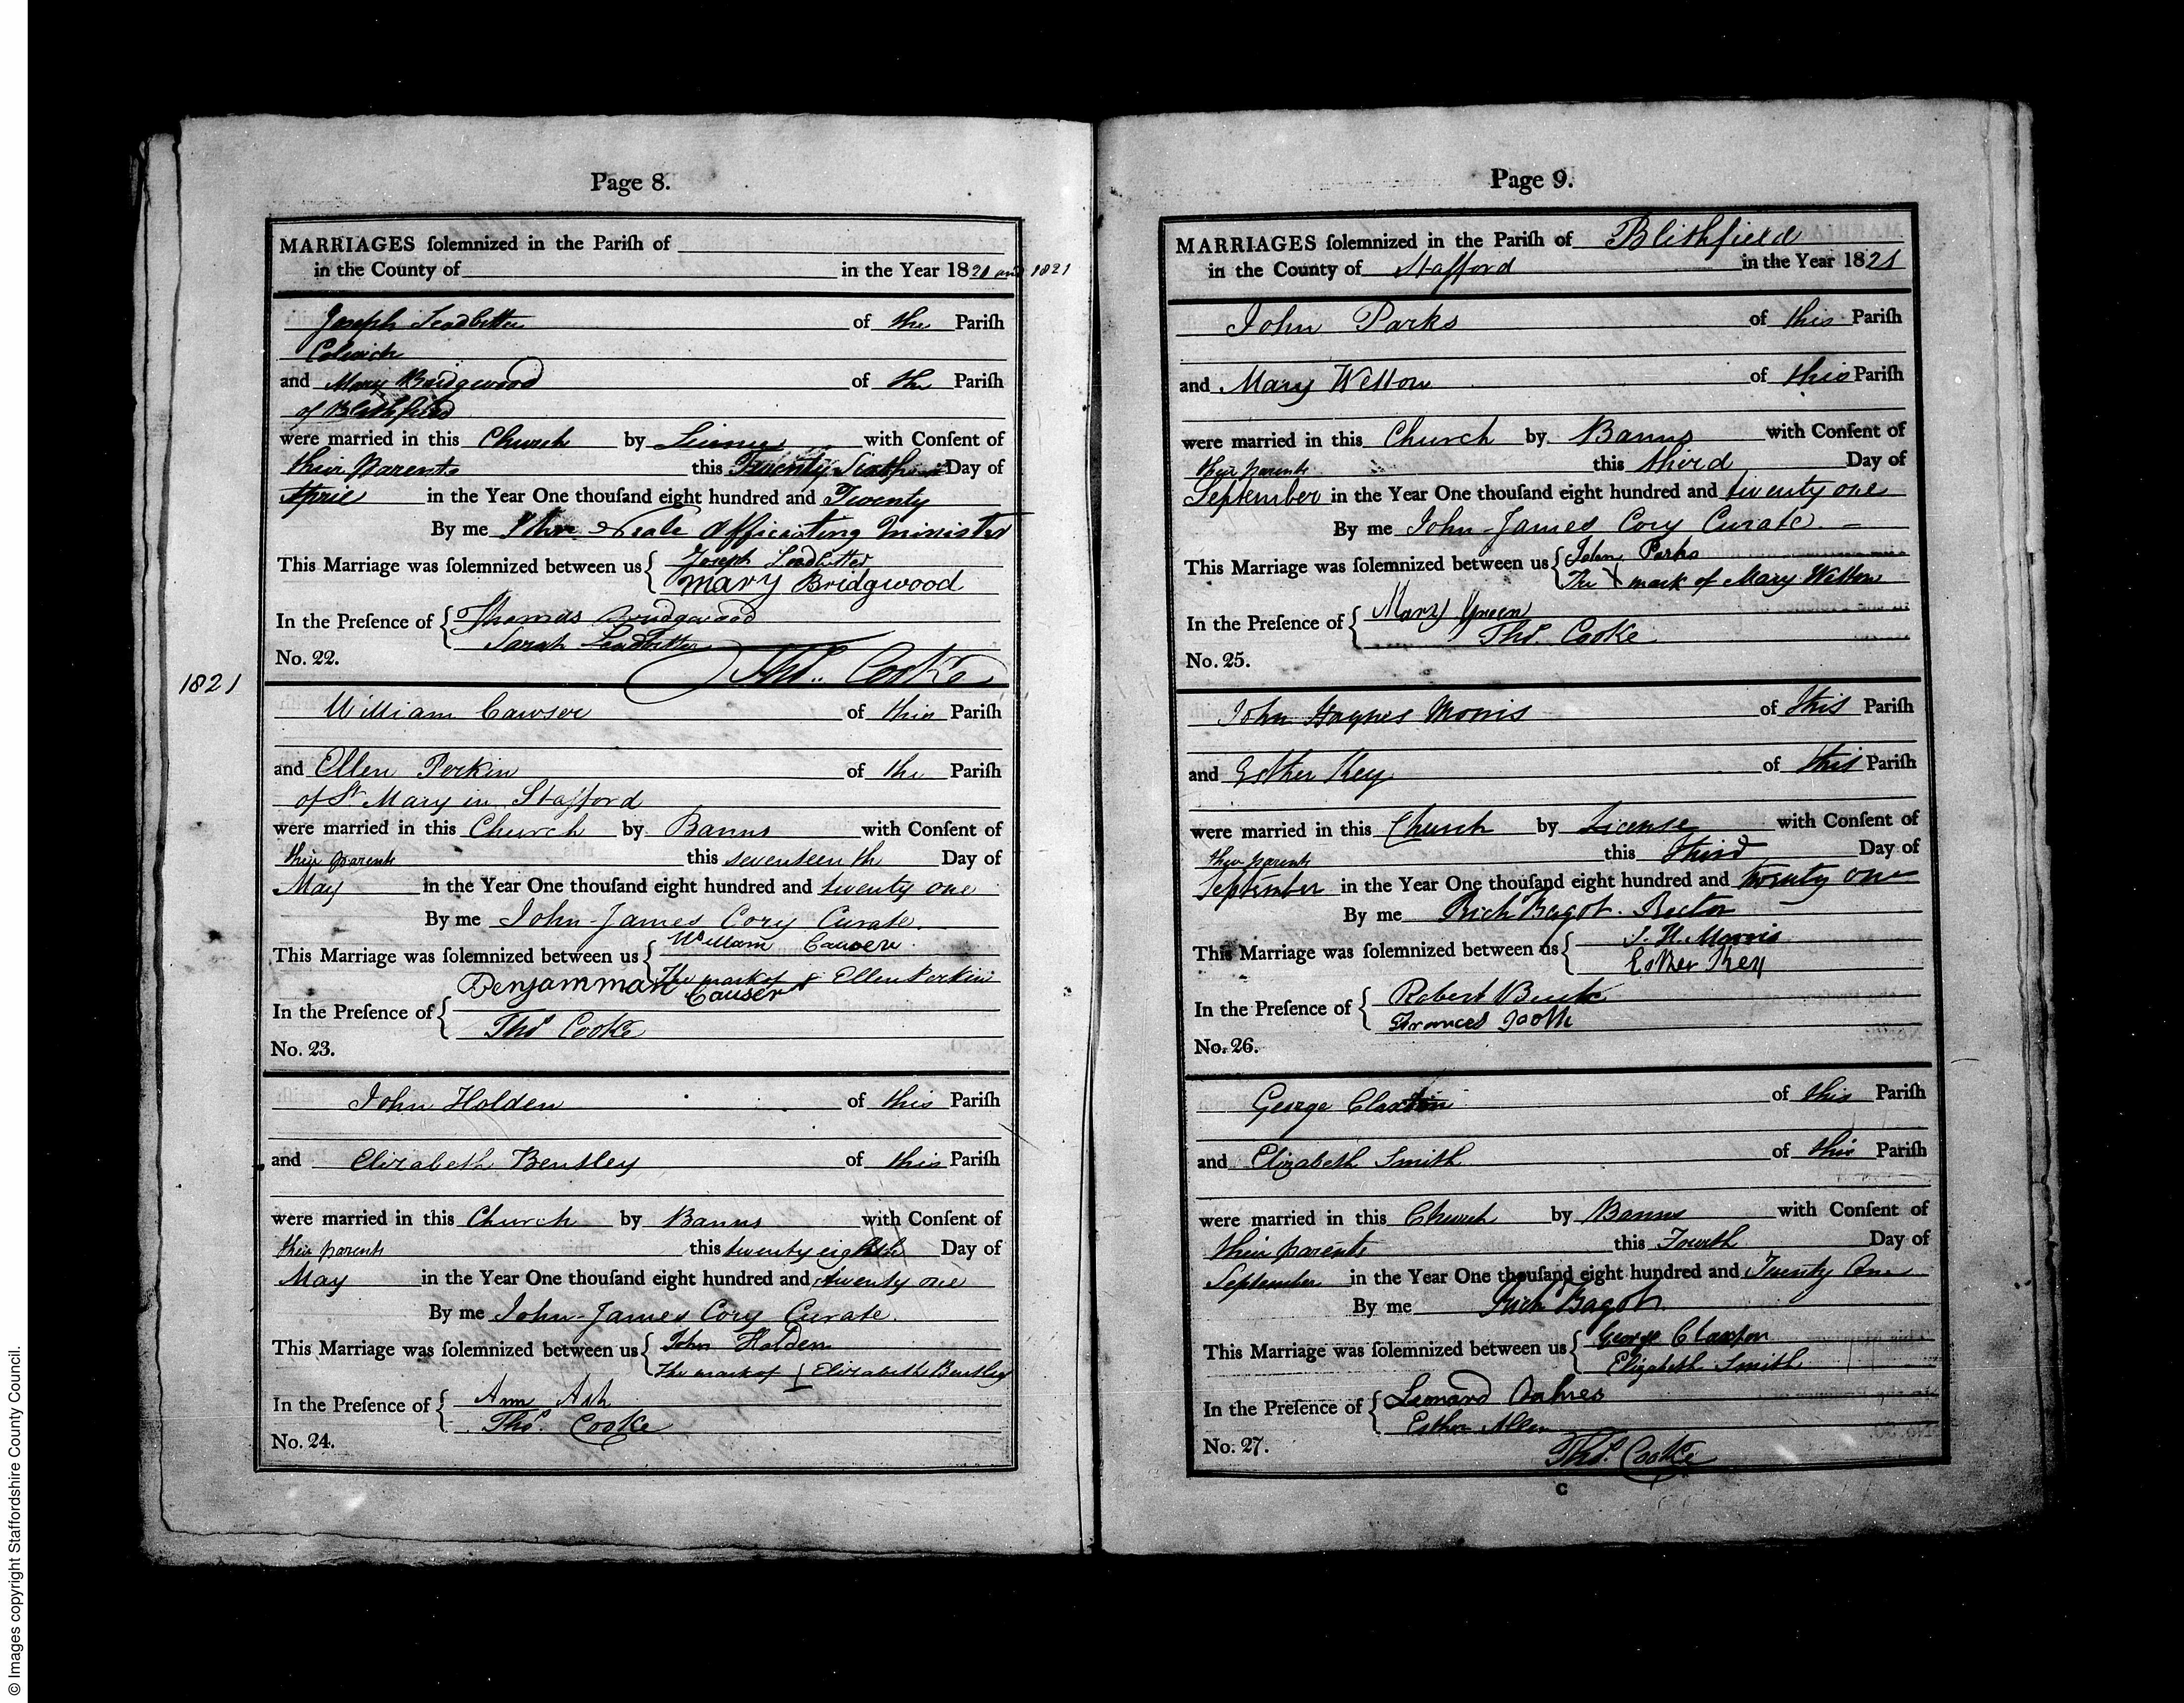 Page 8.
MARRIAGES ſolemnized in the Pariſh of
in the County of in the Year 1820 and 1821
Joseph Leadbitter of the Pariſh
Colwich
and Mary Bridgwood of the Pariſh
of Blithfield
were married in this Church by License with Conſent of
their parents this Twenty Sixth Day of
April in the Year One thouſand eight hundred and Twenty
By me John Neale Officiating Minister
This Marriage was ſolemnized between us { Joseph Leadbitter
Mary Bridgwood
In the Preſence of { Thomas Bridgwood
Sarah Leadbitter
No. 22.
Thos. Cooke
1821
William Cawser of this Pariſh
and Ellen Perkin of the Pariſh
of St Mary in Stafford
were married in this Church by Banns with Conſent of
their parents this seventeenth Day of
May in the Year One thouſand eight hundred and twenty one
By me John-James Cory Curate.
This Marriage was ſolemnized between us { William Causer
The mark of x Ellen Perkin
Benjamman Causer
In the Preſence of {
Thos Cooke
No. 23.
John Holden of this Pariſh
and Elizabeth Bentley of this Pariſh
were married in this Church by Banns with Conſent of
their parents this twenty eighth Day of
May in the Year One thouſand eight hundred and twenty one
By me John-James Cory Curate.
This Marriage was ſolemnized between us { John Holden
The mark of Elizabeth Bentley
In the Preſence of { Ann Ash
Thos. Cooke
No. 24.
Page 9.
MARRIAGES ſolemnized in the Pariſh of Blithfield
in the County of Stafford in the Year 1821
John Parks of this Pariſh
and Mary Wetton of this Pariſh
were married in this Church by Banns with Conſent of
their parents this third Day of
September in the Year One thouſand eight hundred and twenty one
By me John-James Cory Curate.
This Marriage was ſolemnized between us { John Parks
The X mark of Mary Wetton
In the Preſence of { Mary Green
Thos. Cooke
No. 25.
John Haynes Morris of this Pariſh
and Esther Key of this Pariſh
were married in this Church by License with Conſent of
their parents this third Day of
September in the Year One thouſand eight hundred and twenty one
By me Rich Bagot. Rector
This Marriage was ſolemnized between us { J. H. Morris
Esther Key
In the Preſence of { Robert
Frances
No. 26.
George Claxton of this Pariſh
and Elizabeth Smith of this Pariſh
were married in this Church by Banns with Conſent of
their parents this Fourth Day of
September in the Year One thouſand eight hundred and Twenty One
By me Rich Bagot.
This Marriage was ſolemnized between us { George Claxton
Elizabeth Smith
In the Preſence of { Leonard
Esther Allen
No. 27.
Thos. Cooke
C
© Images copyright Staffordshire County Council.